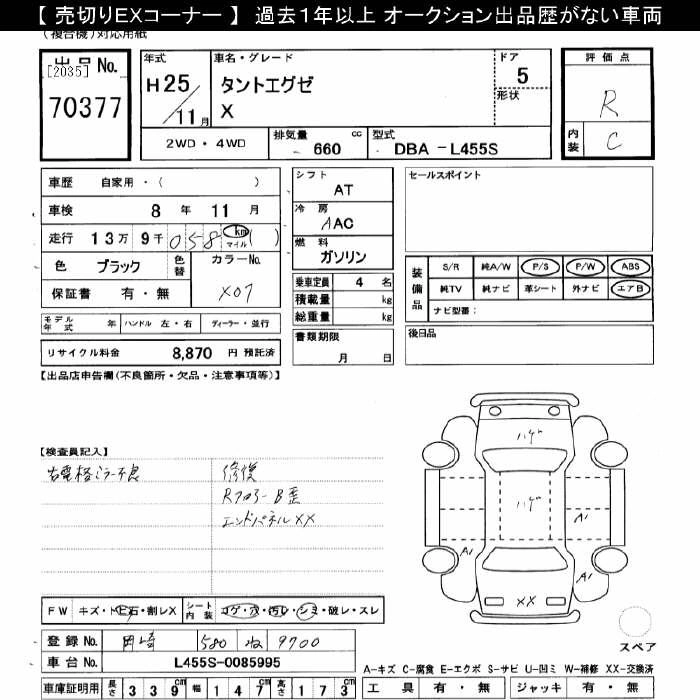 【 売切りEXコーナー 】 過去１年以上 オークション出品歴がない車両
(複合機) 対応用紙
出品No.
[2035]
70377
年式
H25/11月
車名・グレード
タントエグゼ
X
ドア
5
形状
評価点
R
内装
C
2WD・4WD
排気量 cc
660
型式
DBA -L455S
車歴 自家用・( )
車検 8 年 11 月
走行 13万 9千 058 km マイル ( )
色 ブラック 色替 カラーNo.
X07
保証書 有・無
シフト
AT
冷房
AAC
燃料
ガソリン
乗車定員 4 名
積載量 kg
総重量 kg
セールスポイント
装備品
S/R 純A/W P/S P/W ABS
純TV 純ナビ 革シート 外ナビ エアB
ナビ型番：
モデル年式 年 ハンドル 左・右 ディーラー・並行
書類期限
月 日
後日品
リサイクル料金 8,870 円 預託済
【出品店申告欄(不良箇所・欠品・注意事項等)】
【検査員記入】
右電格ミラー不良
修復
Rフロアー B歪
エンドパネルXX
ハゲ
ハゲ
A1
A1
A1
XX
スペア
FW キズ・ト石・割レX
シート内装 コゲ・穴・汚レ・シミ・破レ・スレ
登録No. 岡崎 580 ぬ 9700
車台No. L455S-0085995
A-キズ C-腐食 E-エクボ S-サビ U-凹ミ W-補修 XX-交換済
車庫証明用 長さ 339cm 幅 147cm 高さ 173cm
工具 有・無 ジャッキ 有・無